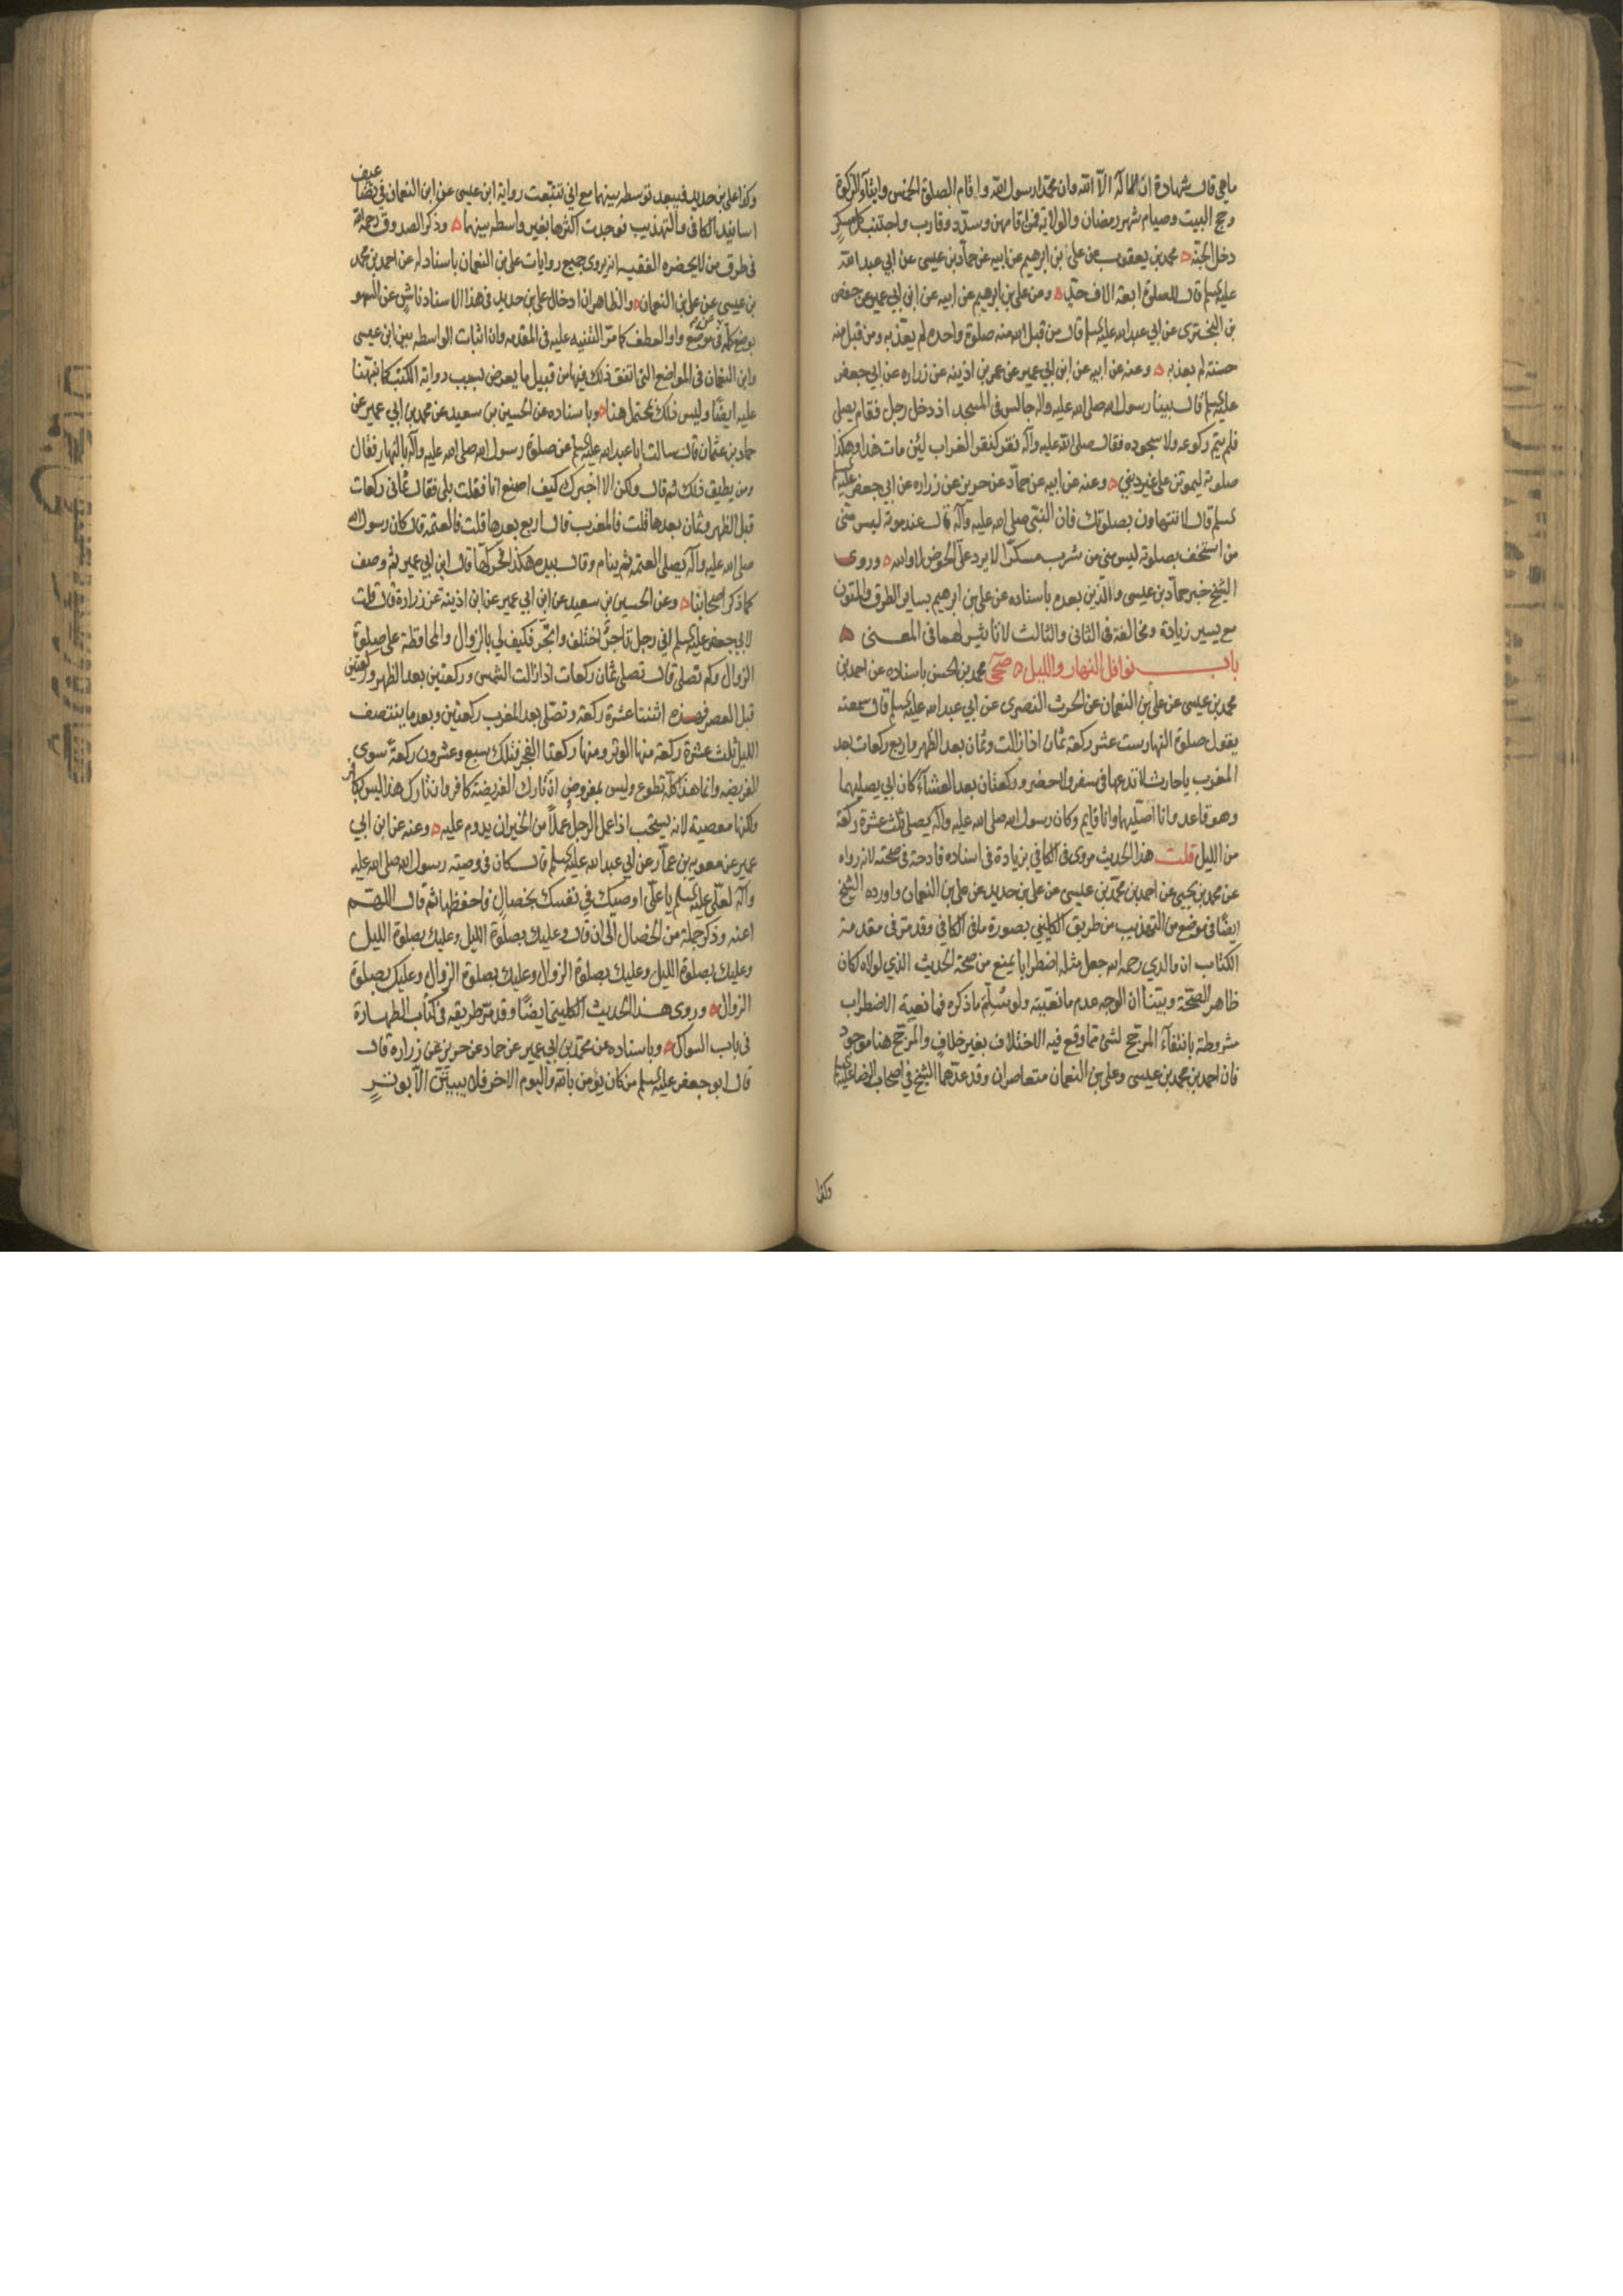 ماهي قال شهادة ان لا اله الا الله وان محمدا رسول الله واقام الصلوة الخمس وايتاء الزكوة
وحج البيت وصيام شهر رمضان والولاية فمن اقامهن وسدد وقارب واجتنب كل مسكر
دخل الجنة محمد بن يعقوب عن علي بن ابرهيم عن ابيه عن حماد بن عيسى عن ابي عبد الله
عليه السلم قال للصلوة اربعة الاف حد وعن علي بن ابرهيم عن ابيه عن ابن ابي عمير عن حفص
بن البختري عن ابي عبد الله عليه السلم قال من قبل الله منه صلوة واحدة لم يعذبه ومن قبل منه
حسنة لم يعذبه وعنه عن ابيه عن ابن ابي عمير عن عمر بن اذينه عن زراره عن ابي جعفر
عليه السلم قال بينا رسول الله صلى الله عليه واله جالس في المسجد اذ دخل رجل فقام يصلي
فلم يتم ركوعه ولا سجوده فقال صلى الله عليه وآله نقر كنقر الغراب لئن مات هذا وهكذا
صلوته ليموتن على غير ديني وعنه عن ابيه عن حماد عن حريز عن زراره عن ابي جعفر عليه
السلم قال لا تتهاون بصلوتك فان النبي صلى الله عليه وآله قال عند موته ليس منى
من استخف بصلوته ليس مني من شرب مسكرا لا يرد على الحوض لا والله وروى
الشيخ خبر حماد بن عيسى والذين بعده باسناده عن علي بن ابرهيم بساير الطرق والمتون
مع يسير زيادة ومخالفة في الثاني والثالث لا تاثير لهما في المعنى
باب نوافل النهار والليل صحي محمد بن الحسن باسناده عن احمد بن
محمد بن عيسى عن علي بن النعمان عن الحرث النصرى عن ابي عبد الله عليه السلم قال سمعته
يقول صلوة النهار ست عشر ركعة ثمان اذا زالت وثمان بعد الظهر واربع ركعات بعد
المغرب يا حارث لا تدعها في سفر ولا حضر وركعتان بعد العشاء كان ابي يصليهما
وهو قاعد وانا اصليهما وانا قايم وكان رسول الله صلى الله عليه وآله يصلى ثلث عشرة ركعة
من الليل قلت هذا الحديث مروى في الكافي بزيادة في اسناده قادحة في صحته لانه رواه
عن محمد بن يحيى عن احمد بن محمد بن عيسى عن علي بن حديد عن علي بن النعمان واورده الشيخ
ايضا في موضع من التهذيب من طريق الكليني بصورة ما في الكافي وقد مر في مقدمة
الكتاب ان والدي رحمه الله جعل مثله اضطرابا يمنع من صحة الحديث الذي لولاه لكان
ظاهر الصحة وبينا ان الوجه عدم مانعيته ولو سلم ما ذكره فمانعية الاضطراب
مشروطة بانتفاء المرجح لشئ مما وقع فيه الاختلاف بغير خلاف والمرجح هنا موجود
فان احمد بن محمد بن عيسى وعلي بن النعمان متعاصران وقد عدهما الشيخ في اصحاب الرضا عليه السلم
وكذا
وكذا علي بن حديد فيبعد توسطه بينهما مع اني تتبعت رواية ابن عيسى عن ابن النعمان في تضاعيف
اسانيد الكافي والتهذيب فوجدت اكثرها بغير واسطه بينهما وذكر الصدوق رحمه الله
في طرق من لا يحضره الفقيه انه يروى جميع روايات علي بن النعمان باسناد له عن احمد بن محمد
بن عيسى عن علي بن النعمان والظاهر ان ادخال علي بن حديد في هذا الاسناد ناش عن السهو
بوضع كلمة عن في موضع واو العطف كما مر التنبيه عليه في المقدمه وان اثبات الواسطه بين ابن عيسى
وابن النعمان في المواضع التي اتفق ذلك فيها من قبيل ما يعرض بسبب رواية الكتب كما نبهنا
عليه ايضا وليس ذلك بمحتمل هنا وباسناده عن الحسين بن سعيد عن محمد بن ابي عمير عن
حماد بن عثمان قال سالت ابا عبد الله عليه السلم عن صلوة رسول الله صلى الله عليه وآله بالنهار فقال
ومن يطيق ذلك ثم قال ولكن الا اخبرك كيف اصنع انا فقلت بلى فقال ثماني ركعات
قبل الظهر وثمان بعدها قلت فالمغرب قال اربع بعدها قلت فالعتمة قال كان رسول الله
صلى الله عليه وآله يصلى العتمة ثم ينام وقال بيده هكذا فحركها قال ابن ابي عمير ثم وصف
كما ذكر اصحابنا وعن الحسين بن سعيد عن ابن ابي عمير عن ابن اذينة عن زرارة قال قلت
لابي جعفر عليه السلم اني رجل تاجر اختلف واتجر فكيف لي بالزوال والمحافظة على صلوة
الزوال وكم تصلى قال تصلى ثمان ركعات اذا زالت الشمس وركعتين بعد الظهر وركعتين
قبل العصر فهذه اثنتا عشرة ركعة وتصلى بعد المغرب ركعتين وبعد ما ينتصف
الليل ثلث عشرة ركعة منها الوتر ومنها ركعتا الفجر فتلك سبع وعشرون ركعة سوى
الفريضه وانما هذا كله تطوع وليس بمفروض ان تارك الفريضة كافر وان تارك هذا ليس بكافر
ولكنها معصية لانه يستحب اذا عمل الرجل عملا من الخير ان يدوم عليه وعنه عن ابن ابي
عمير عن معويه بن عمار عن ابي عبد الله عليه السلم قال كان في وصية رسول الله صلى الله عليه
وآله لعلي عليه السلم يا علي اوصيك في نفسك بخصال فاحفظها ثم قال اللهم
اعنه وذكر جملة من الخصال الى ان قال وعليك بصلوة الليل وعليك بصلوة الليل
وعليك بصلوة الليل وعليك بصلوة الزوال وعليك بصلوة الزوال وعليك بصلوة
الزوال وروى هذا الحديث الكليني ايضا وقد مر طريقه في كتاب الطهارة
في باب السواك وباسناده عن محمد بن ابي عمير عن حماد عن حريز عن زراره قال
قال ابو جعفر عليه السلم من كان يؤمن بالله واليوم الاخر فلا يبيتن الا بوتر